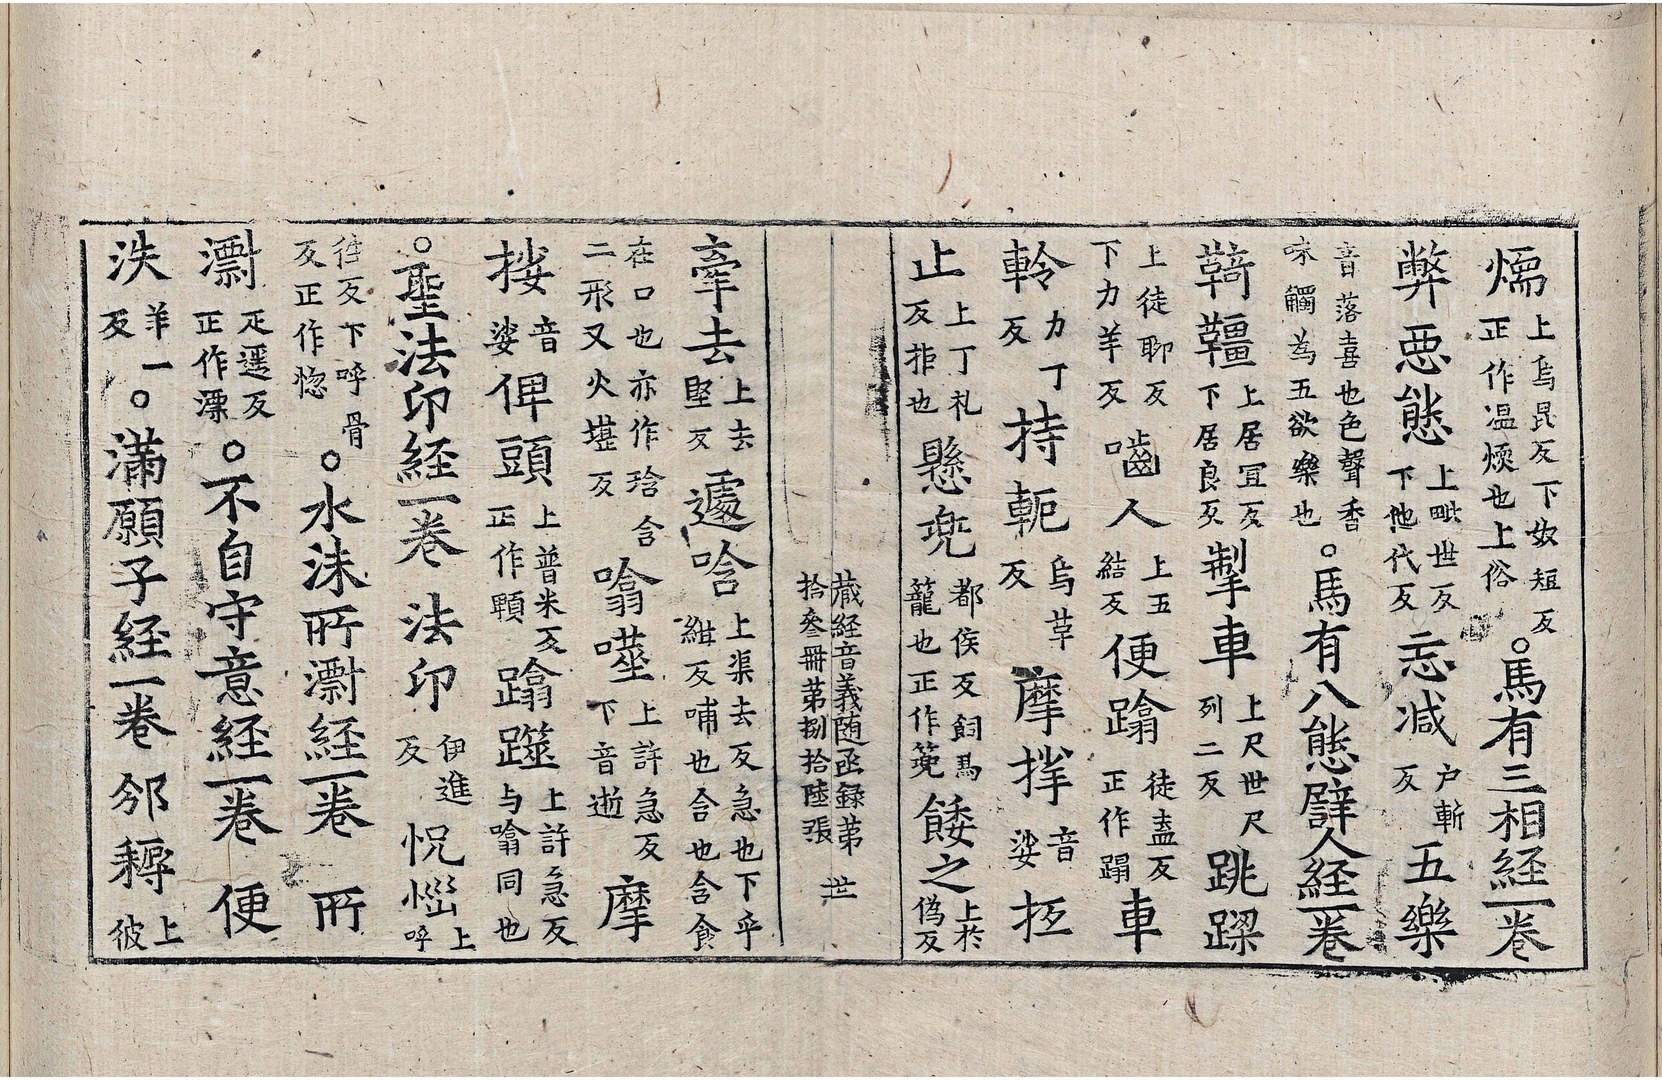 煗上烏昆反下奴短反正作温煗也上俗。馬有三相経一卷
弊惡態上毗世反下他代反忘減户斬反五樂
音落喜也色聲香味觸為五欲樂也。馬有八態譬人経一卷
鞿韁上居冝反下居良反掣車上尺世尺列二反跳踯
上徒聊反下力羊反嚙人上五結反便蹹徒盍反正作蹋車
軨力丁反持軛烏革反摩挱音娑抂
止上丁礼反拒也懸兠都侯反飼馬籠也正作篼餧之上於偽反
蔵経音義随函録第拾叄冊第捌拾陸張 世
牽去上去堅反遽唅上渠去反急也下乎紺反哺也含也含食
在口也亦作琀含二形又火堪反噏噬上許急反下音逝摩
挱音娑俾頭上普米反正作頼蹹躡上許急反与噏同也
。聖法印経一卷 法印伊進反怳惚上呼
往反下呼骨反正作惚。水沫所漂経一卷 所
漂疋遥反正作漂。不自守意経一卷 便
泆羊一反。滿願子経一卷 邠耨上彼